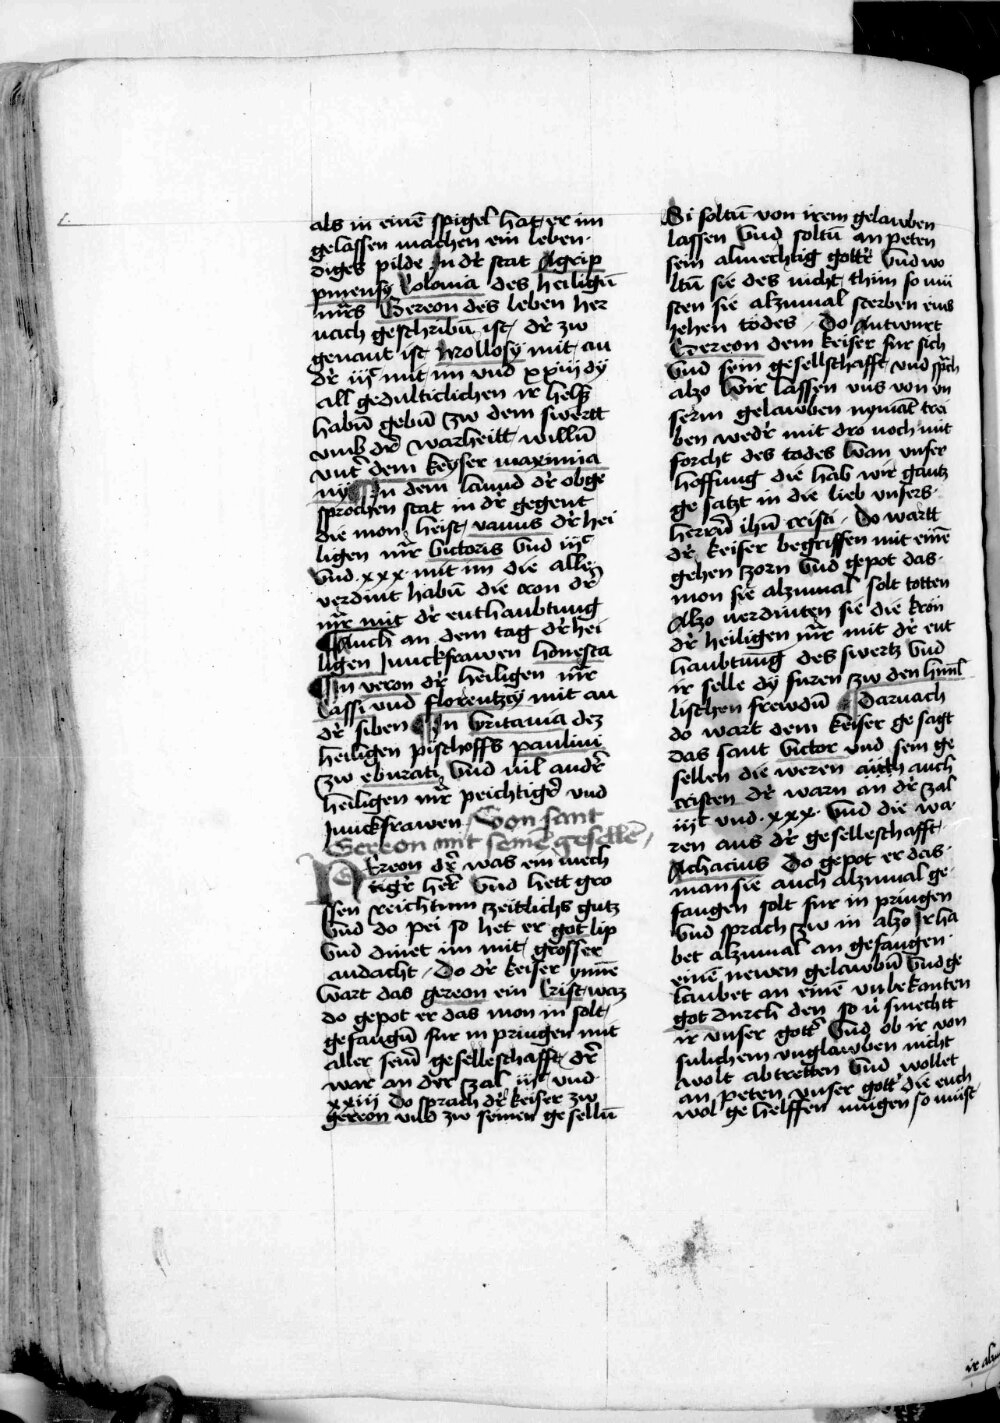 als in einē spigel hat er im
gelassen machen ein leben
diges pilde Jn dr̄ stat Agrip
pinensy Colonia des heiligū
mr̄rs Gereon des leben her
nach geschribū ist dr̄ zw
genant ist Mollosy mit an
dr̄ iijc mit im vnd xxiij dy
all gedulticlichen ir helß
habū gebū zw dem swertt
vmb dr̄ warheitt willū
vnt̄ dem keyser maximia
nij Jn dem lannd dr̄ obge
sprochen stat in dr̄ gegent
die mon heist vanus dr̄ hei
ligen mr̄ Victoris vnd iijc
vnd xxx mit im die allē
verdint habū die cron dr̄
mr̄ mit dr̄ enthaubtung
Auch an dem tag dr̄ hei
ligen Junckfrawen honesta
Jn veron dr̄ heiligen mr̄
Cassi vnd florentzy mit an
dr̄ siben Jn Britania dez
heiligen pischoffs paulini
zw eburati vnd vil andr̄
heiligen mr̄ peichtigr̄ vnd
Junckfrawen Von sant
Gereon mit seinē gesellē
Gereon dr̄ was ein mech
tigr̄ her̄ vnd hett gro
ssen reichtum zeitlichs gutz
vnd do pei so het er got lip
vnd dinet im mit grosser
andacht Do dr̄ keiser ynnē
wart das gereon ein Crist waz
do gepot er das mon in solt
gefangū fur in pringen mit
aller seinr̄ geselleschafft dr̄
war an der zal iijc vnd
xxiij Do sprach dr̄ keiser zw
gereon vnd zw seinen gesellū
Si soltū von irem gelawben
lassen vnd soltū an peten
sein almechtig gottr̄ vnd wo
ltū sie des nicht thun so mü
sten sie alzumal sterben eins
iehen todes Do Antwurt
Gereon dem keiser fur sich
vnd sein gesellschafft vnd sprach
alzo wir lassen vns von vn
serm gelawben nymāt trei
ben wedr̄ mit dro noch mit
forcht des todes wan vnser
hoffung die hab wir gantz
ge satzt in die lieb vnsers
herrn̄ ihū cristi Do wartt
dr̄ keiser begriffen mit einē
gehen zorn vnd gepot das
mon sie alzumal solt totten
Alzo verdinten sie die kron
dr̄ heiligen mr̄r mit dr̄ ent
haubtung des swertz vnd
ir selle dy furen zw den himl
lischen frewdū Darnach
do wart dem keiser ge sagt
das sant Victor vnd sein ge
sellen die weren auch
cristen dr̄ warn an dr̄ zal
iijc vnd xxx vnd die wa
ren aus dr̄ geselleschafft
Achacius Do gepot er das
man sie auch alzumal ge
fangen solt fur in pringen
vnd sprach zw in alzo Jr ha
bet alzumal an gefangen
einē newen gelawbū vnd ge
laubet an einē vnbekanten
got durch den so v̄ smechtt
ir vnser gottr̄ vnd ob ir von
sulichem vnglawben nicht
wolt ab tretten vnd wollet
an peten vnser gott die euch
wol ge helffen mugen so müst